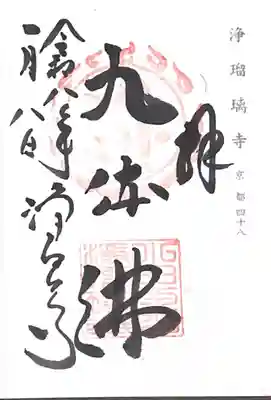 浄瑠璃寺 京都四十八
奉拝
九体佛
令和八年
一月八日
浄瑠璃寺